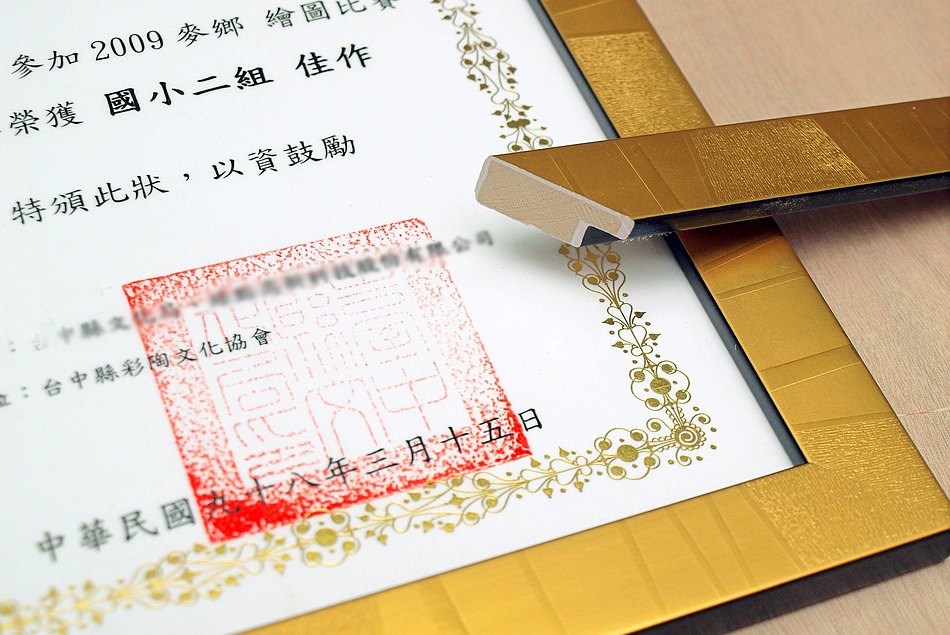 參加2009麥鄉 繪圖比賽
榮獲 國小二組 佳作
特頒此狀，以資鼓勵
：台中縣文化局、 股份有限公司
位：台中縣彩陶文化協會
中華民國九十八年三月十五日